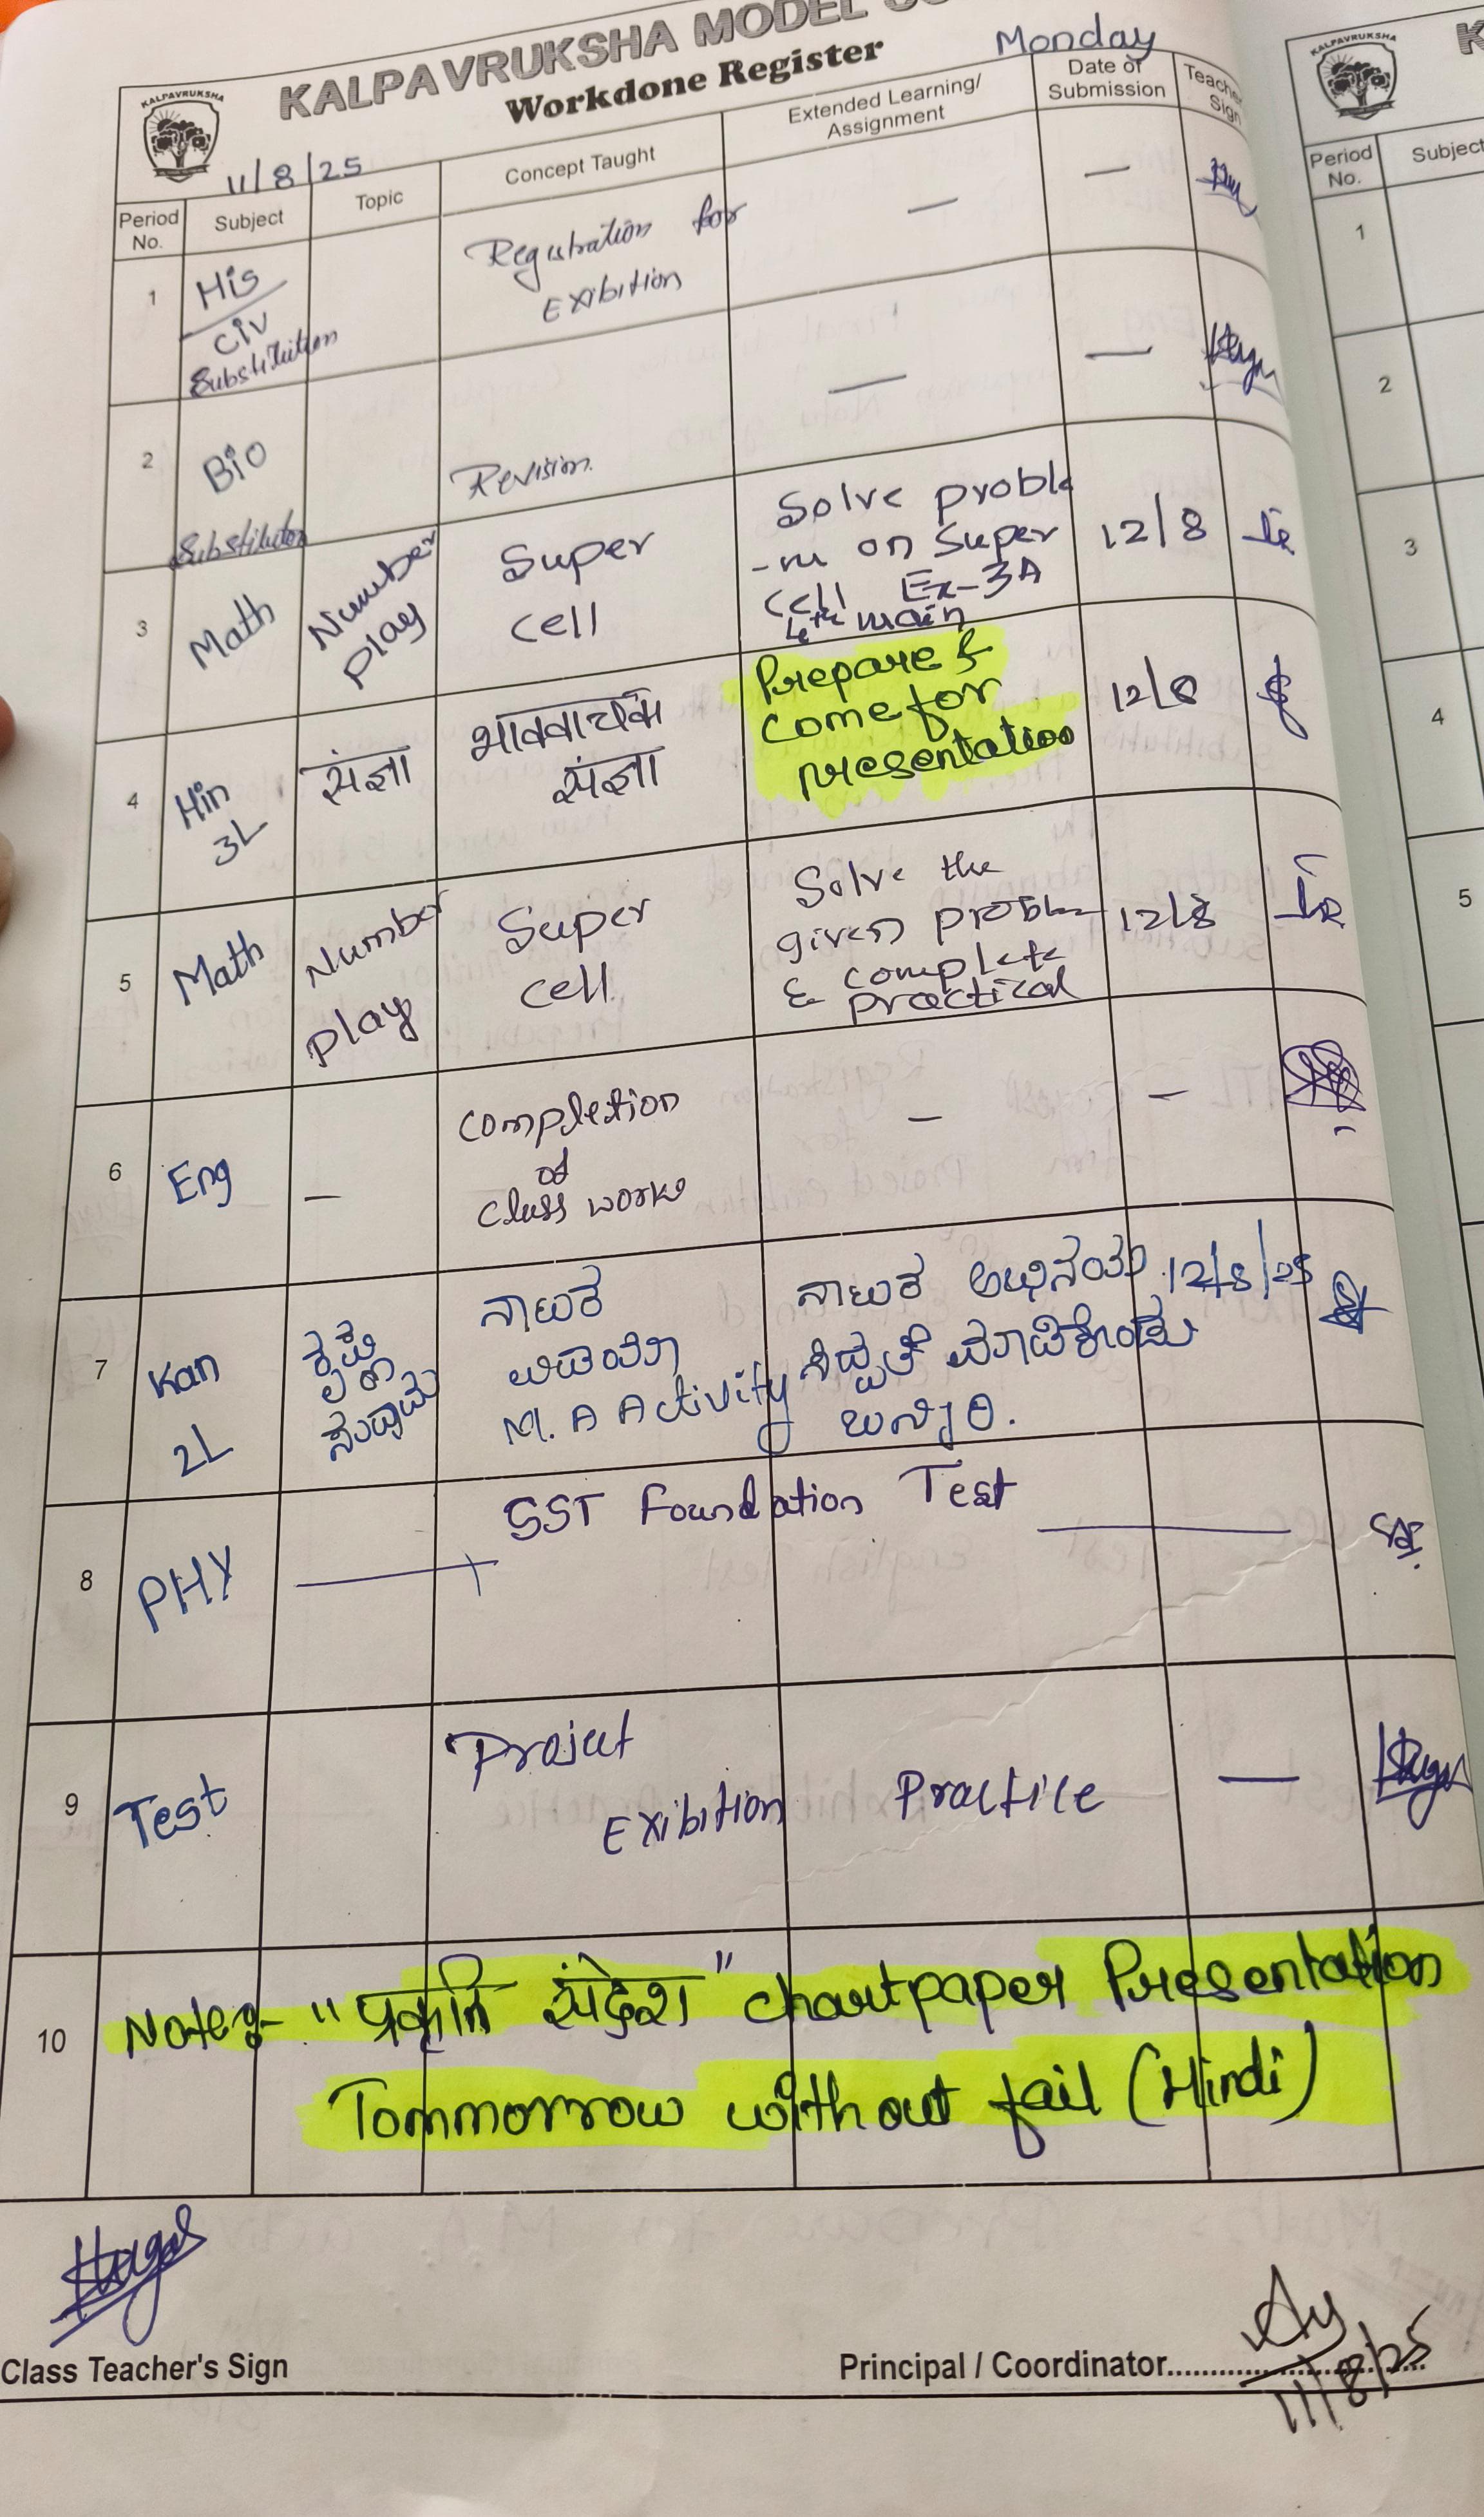 KALPAVRUKSHA MODEL
Workdone Register
Monday
KALPAVRUKSHA
11/8/25
Period No.
Subject
Topic
Concept Taught
Extended Learning/ Assignment
Date of Submission
Teacher Sign
1
His
Civ
Substitution
Registration for
Exibition
—
—
2
Bio
Substitution
Revision
—
—
3
Math
Number
play
Super
cell
Solve proble
-m on Super
cell Ex-3A
4th main
12/8
4
Hin
3L
संज्ञा
भाववाचक
संज्ञा
Prepare &
come for
presentation
12/8
5
Math
Number
play
Super
cell
Solve the
given problem
& complete
practical
12/8
6
Eng
—
Completion
of
class works
—
—
7
Kan
2L
ನಾಟಕ
M. A Activity
ನಾಟಕ ಅಭಿನಯ
ಸಿದ್ಧತೆ ಮಾಡಿಕೊಂಡು
ಬನ್ನಿರಿ.
12/8/25
8
PHY
SST Foundation Test
9
Test
Project
Exibition
Practice
—
10
Note:- "प्रकृति संदेश" chartpaper Presentation
Tommorrow without fail (Hindi)
Class Teacher's Sign
Principal / Coordinator
11/8/25
KALPAVRUKSHA
K
Period No.
Subject
1
2
3
4
5